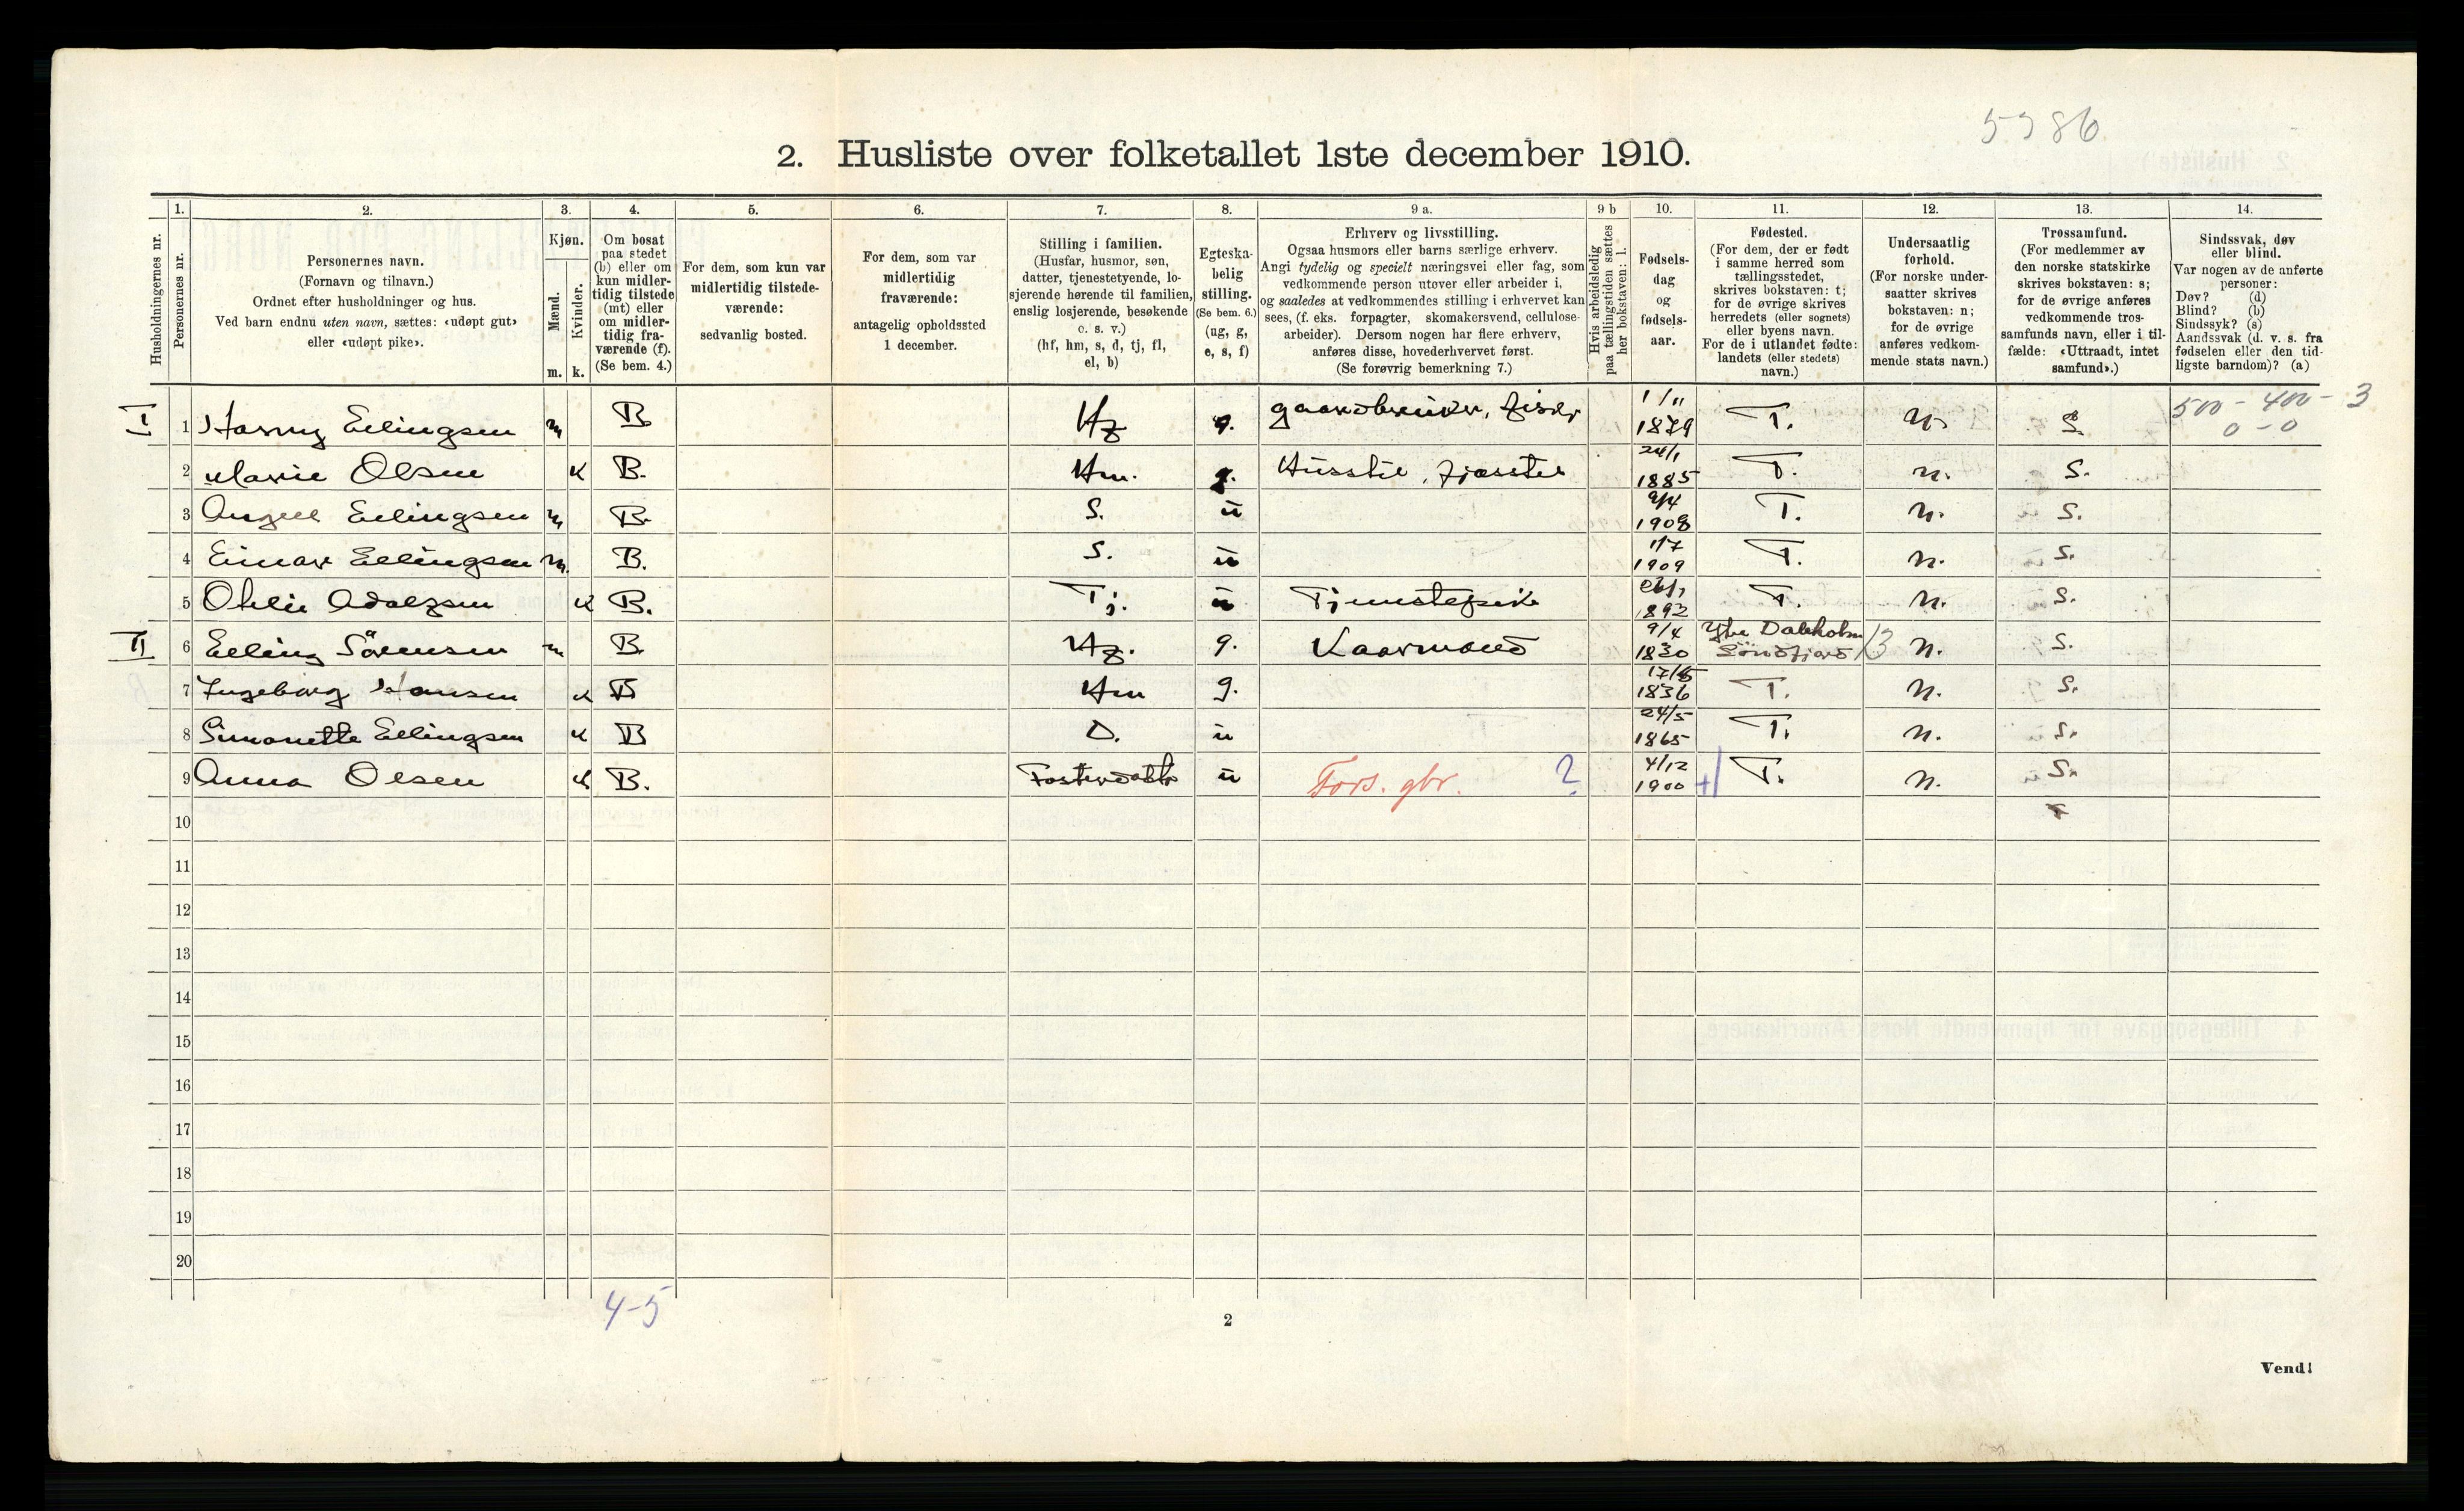 5986
2. Husliste over folketallet 1ste december 1910.
Husholdningernes nr.
1.
Personernes nr.
2.
Personernes navn.
(Fornavn og tilnavn.)
Ordnet efter husholdninger og hus.
Ved barn endnu uten navn, sættes: «udøpt gut»
eller «udøpt pike».
3.
Kjøn.
Mænd.
Kvinder.
m. k.
4.
Om bosat
paa stedet
(b) eller om
kun midler-
tidig tilstede
(mt) eller
om midler-
tidig fra-
værende (f).
(Se bem. 4.)
5.
For dem, som kun var
midlertidig tilstede-
værende:
sedvanlig bosted.
6.
For dem, som var
midlertidig
fraværende:
antagelig opholdssted
1 december.
7.
Stilling i familien.
(Husfar, husmor, søn,
datter, tjenestetyende, lo-
sjerende hørende til familien,
enslig losjerende, besøkende
o. s. v.)
(hf, hm, s, d, tj, fl,
el, b)
8.
Egteska-
belig
stilling.
(Se bem. 6.)
(ug, g,
e, s, f)
9 a.
Erhverv og livsstilling.
Ogsaa husmors eller barns særlige erhverv.
Angi tydelig og specielt næringsvei eller fag, som
vedkommende person utøver eller arbeider i,
og saaledes at vedkommendes stilling i erhvervet kan
sees, (f. eks. forpagter, skomakersvend, cellulose-
arbeider). Dersom nogen har flere erhverv,
anføres disse, hovederhvervet først.
(Se forøvrig bemerkning 7.)
9 b
Hvis arbeidsledig
paa tællingstiden sættes
her bokstaven: l.
10.
Fødsels-
dag
og
fødsels-
aar.
11.
Fødested.
(For dem, der er født
i samme herred som
tællingsstedet,
skrives bokstaven: t;
for de øvrige skrives
herredets (eller sognets)
eller byens navn.
For de i utlandet fødte:
landets (eller stedets)
navn.)
12.
Undersaatlig
forhold.
(For norske under-
saatter skrives
bokstaven: n;
for de øvrige
anføres vedkom-
mende stats navn.)
13.
Trossamfund.
(For medlemmer av
den norske statskirke
skrives bokstaven: s;
for de øvrige anføres
vedkommende tros-
samfunds navn, eller i til-
fælde: «Uttraadt, intet
samfund».)
14.
Sindssvak, døv
eller blind.
Var nogen av de anførte
personer:
Døv? (d)
Blind? (b)
Sindssyk? (s)
Aandssvak (d. v. s. fra
fødselen eller den tid-
ligste barndom)? (a)
I 1 Ellingsen m B. Hf g. gaardbruker, fisker 1/11 1879 T. n. S. 500 - 400 - 3
0 - 0
2 Marie Olsen K B. Hm. g. Husstel, fjøsstel 24/1 1885 T. n. S.
3 Ellingsen m B. S. u 9/4 1908 T. n. S.
4 Einar Ellingsen m. B. S. u 1/7 1909 T. n. S.
5 Otelie Adolfsen K B. Tj. u Tjenstepike 1892 T. n. S.
II 6 Elling Sörensen m B. Hf. g. Kaarmand 9/4 1830 Ytre Söndfjord n. S.
7 Ingeborg Hansen K B Hm g. 1836 T. n. S.
8 Simonette Ellingsen K B D. u 24/5 1865 T. n. S.
9 Anna Olsen K B. Fosterdatter u Fors. gbr. 2 4/12 1900 T. n. S.
10
11
12
13
14
15
16
17
18
19
20
4-5
2
Vend!